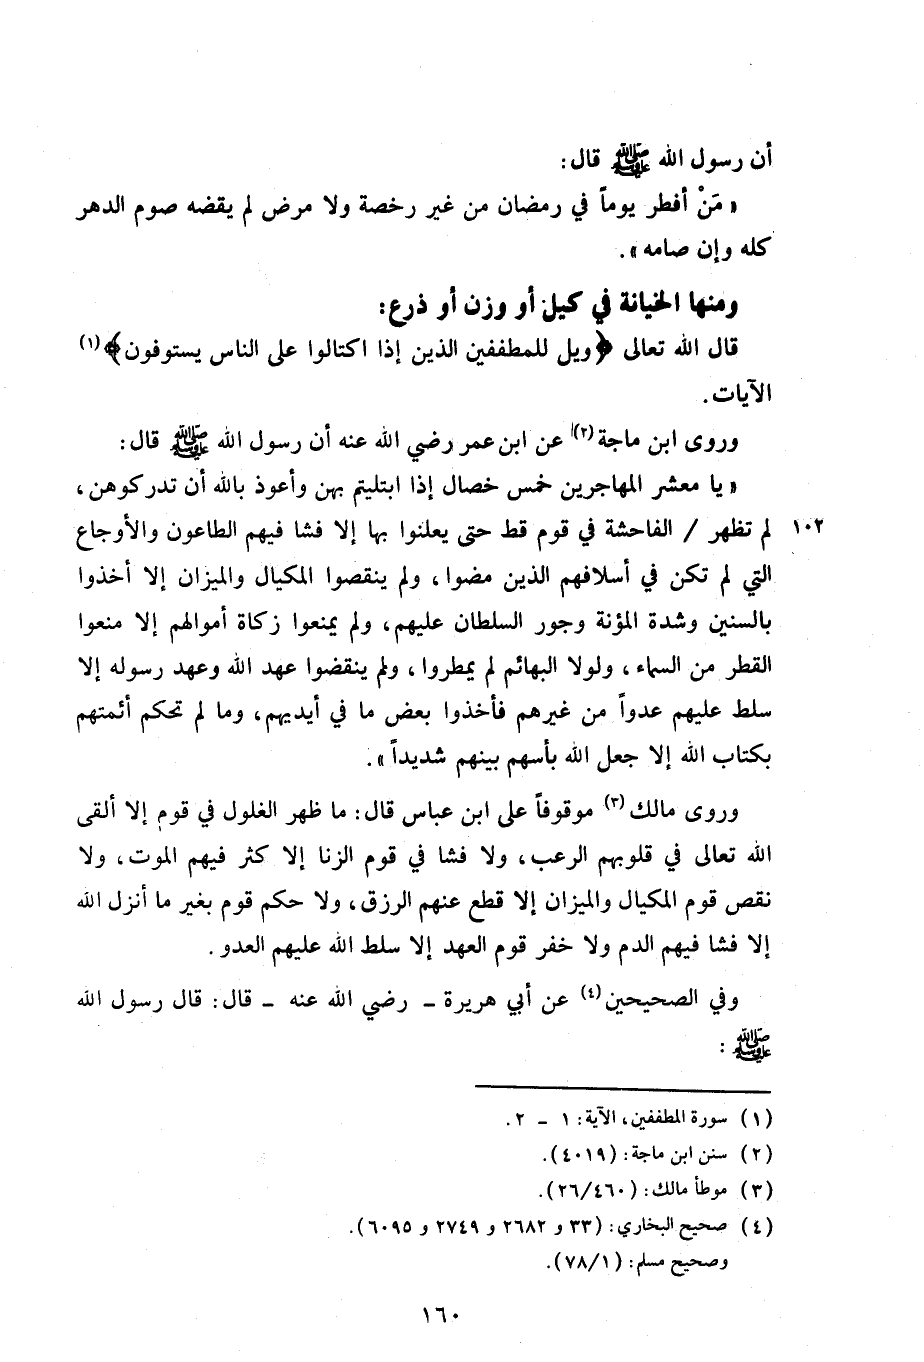 أن رسول الله ﷺ قال:
« مَنْ أفطر يوماً في رمضان من غير رخصة ولا مرض لم يقضه صوم الدهر
كله وإن صامه ».
ومنها الخيانة في كيل أو وزن أو ذرع:
قال الله تعالى ﴿ويل للمطففين الذين إذا اكتالوا على الناس يستوفون﴾(١)
الآيات.
وروى ابن ماجة(٢) عن ابن عمر رضي الله عنه أن رسول الله ﷺ قال:
« يا معشر المهاجرين خمس خصال إذا ابتليتم بهن وأعوذ بالله أن تدركوهن،
١٠٢ لم تظهر / الفاحشة في قوم قط حتى يعلنوا بها إلا فشا فيهم الطاعون والأوجاع
التي لم تكن في أسلافهم الذين مضوا، ولم ينقصوا المكيال والميزان إلا أخذوا
بالسنين وشدة المؤنة وجور السلطان عليهم، ولم يمنعوا زكاة أموالهم إلا منعوا
القطر من السماء، ولولا البهائم لم يمطروا، ولم ينقضوا عهد الله وعهد رسوله إلا
سلط عليهم عدواً من غيرهم فأخذوا بعض ما في أيديهم، وما لم تحكم أئمتهم
بكتاب الله إلا جعل الله بأسهم بينهم شديداً ».
وروى مالك(٣) موقوفاً على ابن عباس قال: ما ظهر الغلول في قوم إلا ألقى
الله تعالى في قلوبهم الرعب، ولا فشا في قوم الزنا إلا كثر فيهم الموت، ولا
نقص قوم المكيال والميزان إلا قطع عنهم الرزق، ولا حكم قوم بغير ما أنزل الله
إلا فشا فيهم الدم ولا خفر قوم العهد إلا سلط الله عليهم العدو.
وفي الصحيحين(٤) عن أبي هريرة ـ رضي الله عنه ـ قال: قال رسول الله
ﷺ :
(١) سورة المطففين، الآية: ١ ـ ٢.
(٢) سنن ابن ماجة: (٤٠١٩).
(٣) موطأ مالك: (٢٦/٤٦٠).
(٤) صحيح البخاري: (٣٣ و ٢٦٨٢ و ٢٧٤٩ و ٦٠٩٥).
وصحيح مسلم: (٧٨/١).
١٦٠